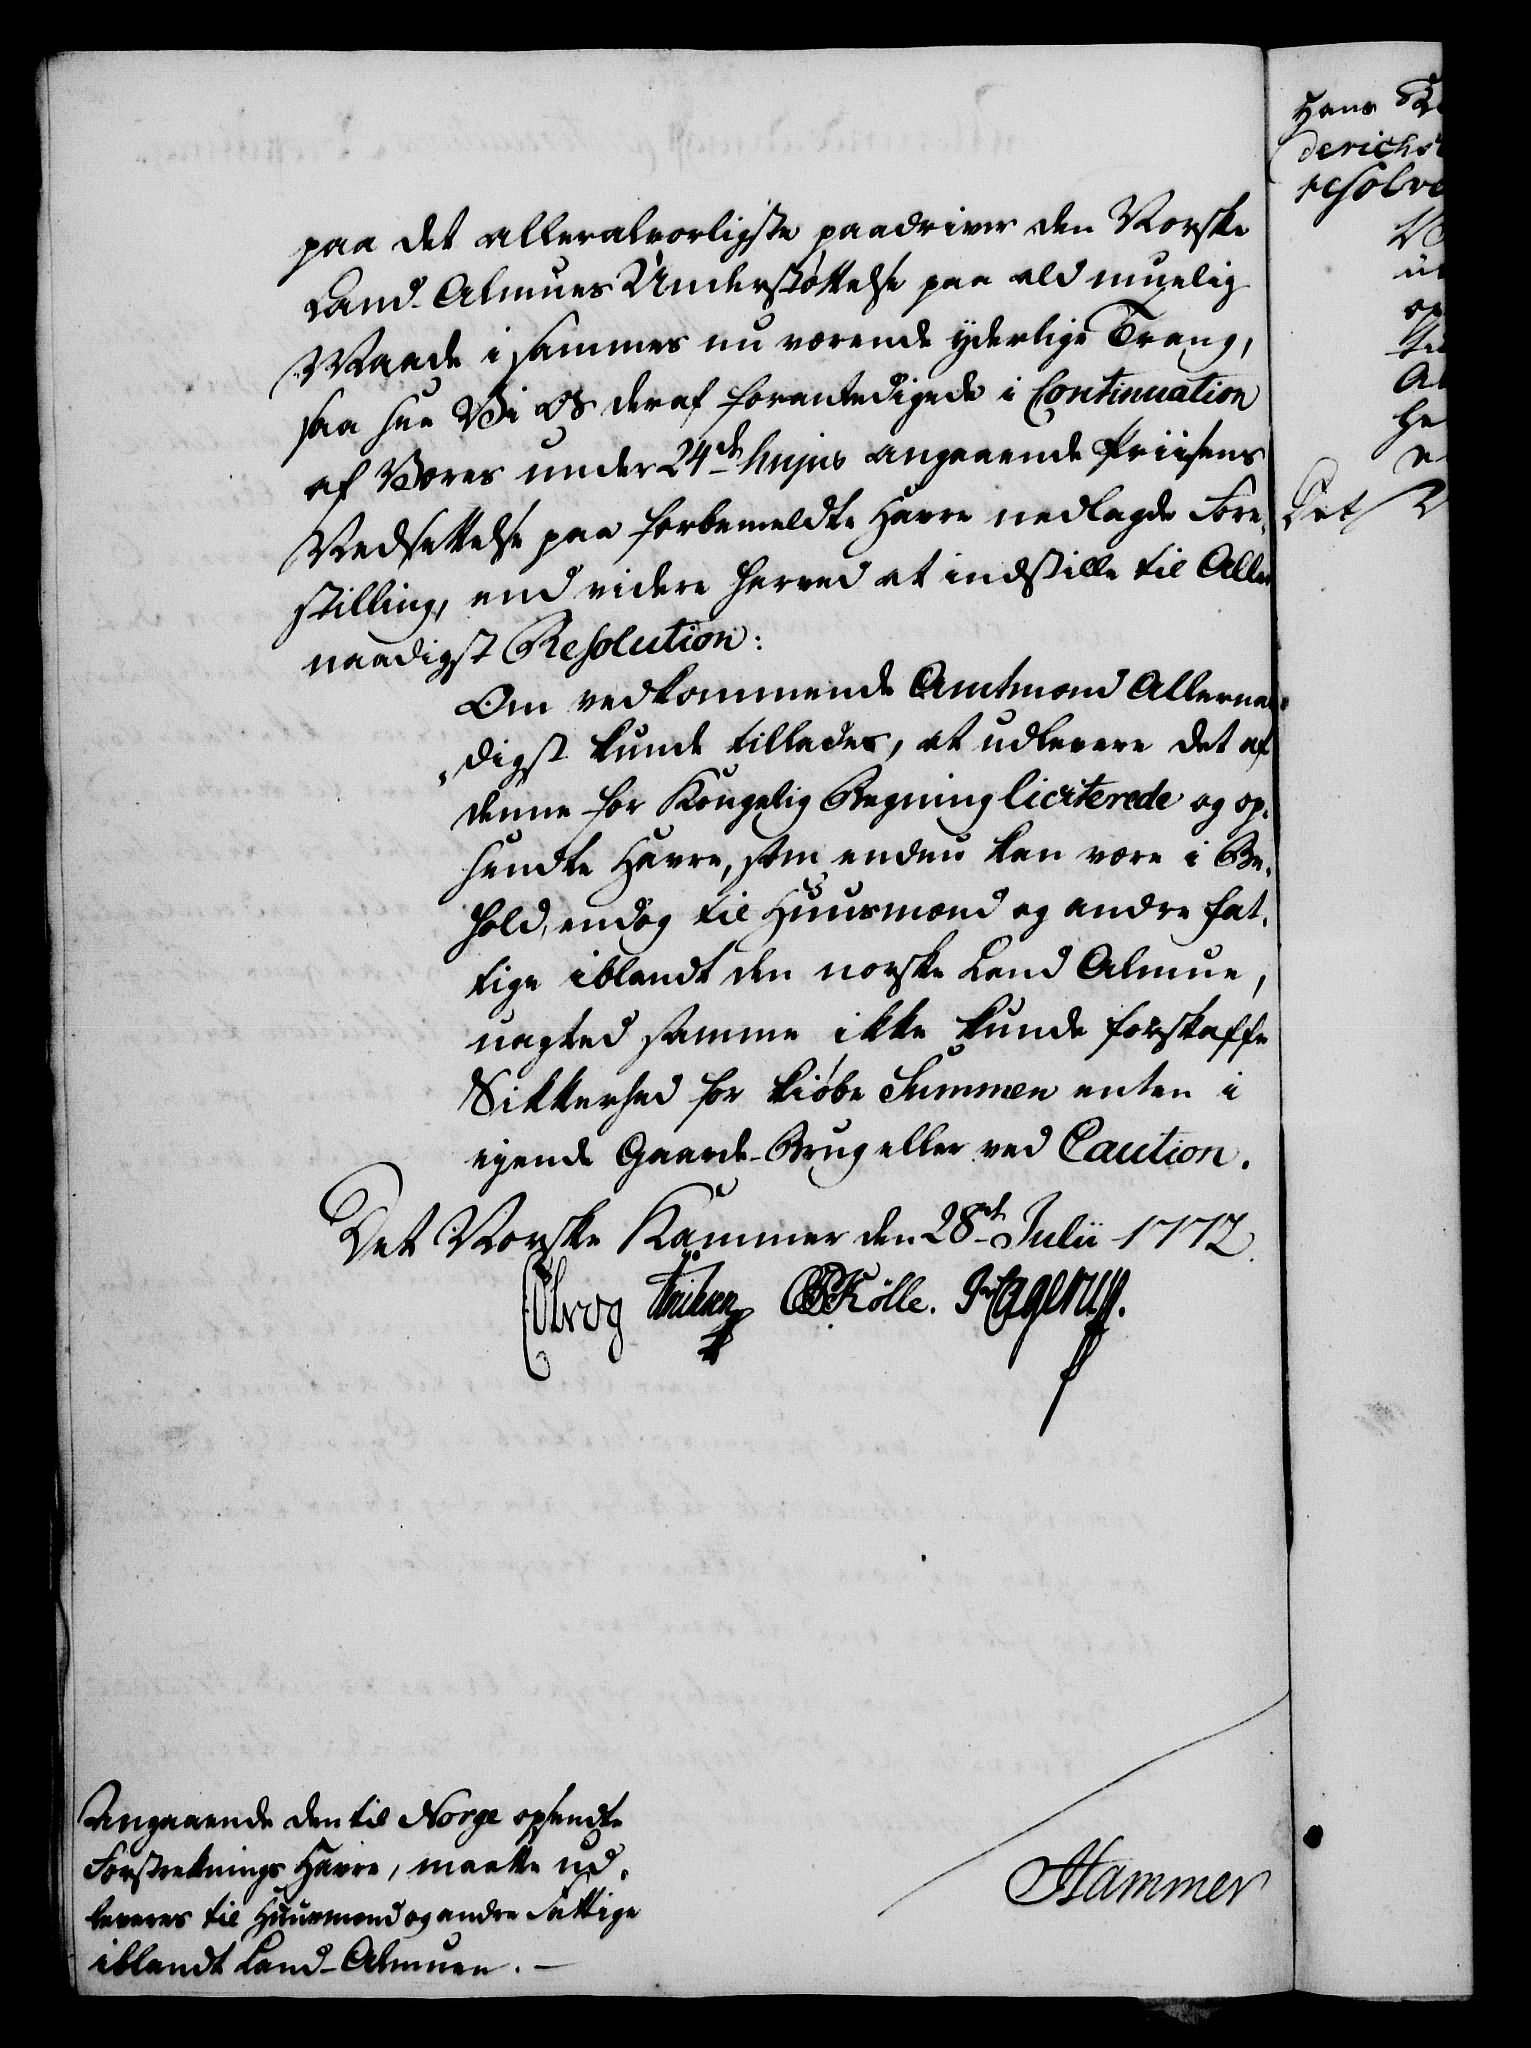 paa det alleralvorligste paadriver den Norske
Land-Almues Understøttelse paa ald muelig
Maade i sammes nu værende yderlige Trang,
saa see Vi os deraf foranledigede i Continuation
af Vores under 24de hujus angaaende Priisens
Nedsettelse paa forbemeldte Havre nedlagde Fore-
stilling, end videre herved at indstille til Aller
naadigst Resolution:
Om vedkommende Amtmænd Allernaa-
digst kunde tillades, at udlevere det af
denne for Kongelig Regning liciterede og op-
sendte Havre, som endnu kan være i Be-
hold, endog til Huusmænd og andre fat-
tige iblandt den norske Land Almue,
uagted samme ikke kunde forskaffe
Sikkerhed for Kiøbe Summen enten i
ejende Gaarde-Brug eller ved Caution.
Det Norske Kammer den 28de Julii 1772.
Holle. Hagerup.
Angaaende den til Norge opsendte
Forstreknings Havre, maatte ud-
leveres til Huusmænd og andre Fattige
iblandt Land-Almuen. -
Hammer
Hans
derichs
resolve
Det